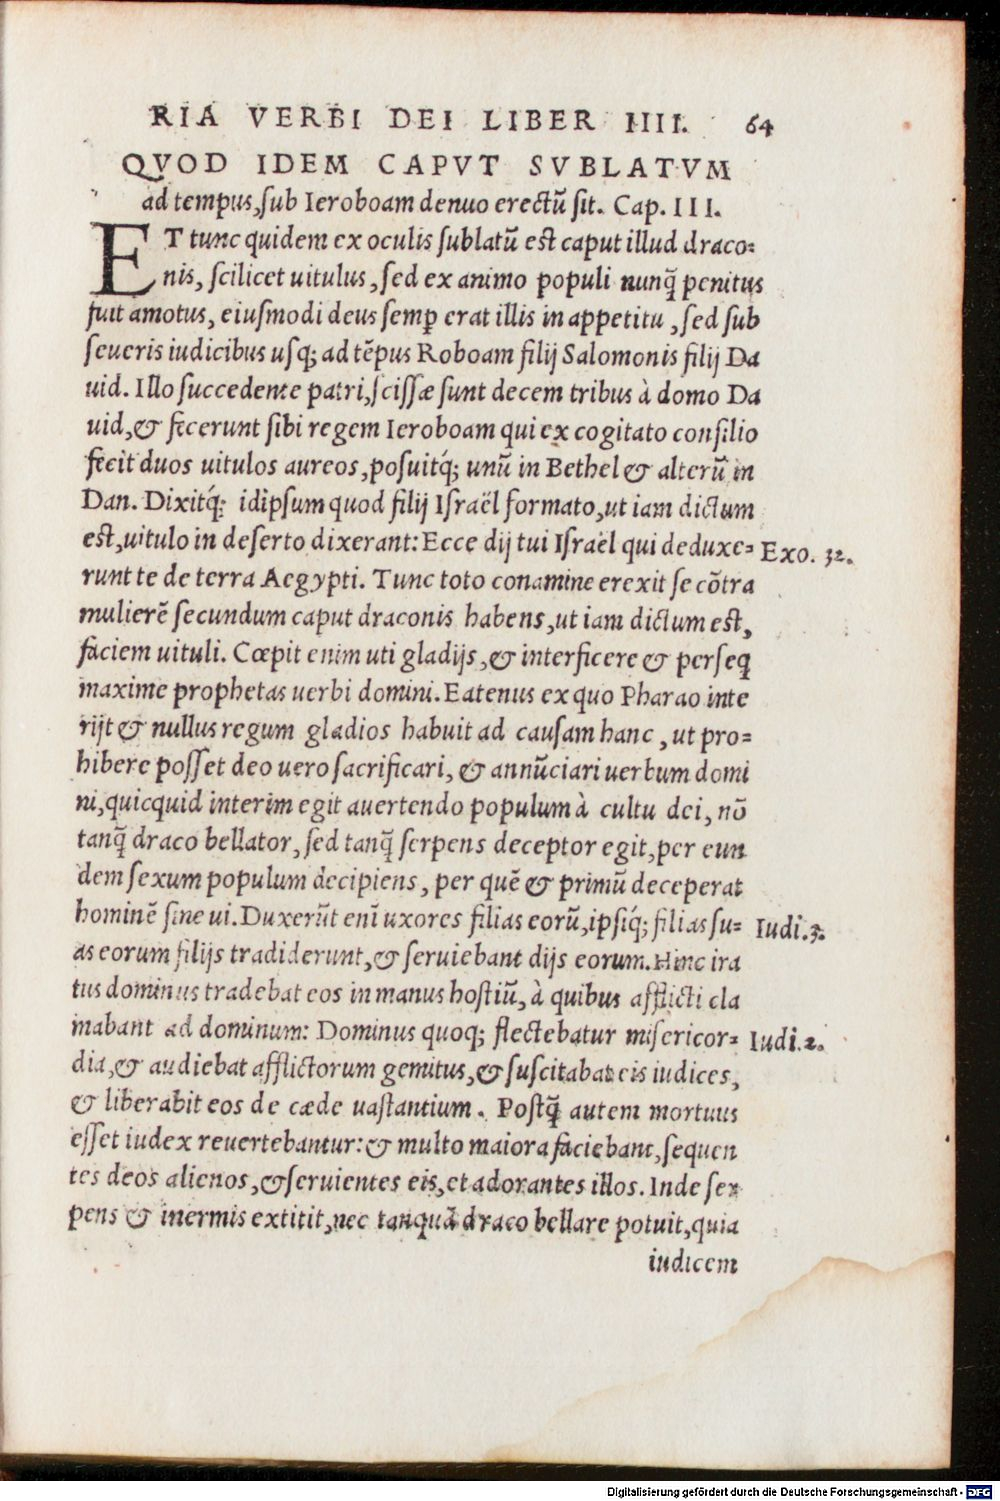 RIA VERBI DEI LIBER IIII. 64
QVOD IDEM CAPVT SVBLATVM
ad tempus, sub Ieroboam denuo erectũ sit. Cap. III.
ET tunc quidem ex oculis sublatũ est caput illud draco=
nis, scilicet uitulus, sed ex animo populi nunq̃ penitus
fuit amotus, eiusmodi deus semp̱ erat illis in appetitu, sed sub
seueris iudicibus usq; ad tẽpus Roboam filij Salomonis filij Da
uid. Illo succedente patri, scissæ sunt decem tribus à domo Da
uid, & fecerunt sibi regem Ieroboam qui excogitato consilio
fecit duos uitulos aureos, posuitq́; unũ in Bethel & alterũ in
Dan. Dixitq́; idipsum quod filij Israël formato, ut iam dictum
est, uitulo in deserto dixerant: Ecce dij tui Israël qui deduxe= Exo. 32.
runt te de terra Aegypti. Tunc toto conamine erexit se cõtra
mulierẽ secundum caput draconis habens, ut iam dictum est,
faciem uituli. Cœpit enim uti gladijs, & interficere & perseq̃
maxime prophetas uerbi domini. Eatenus ex quo Pharao inte
rijt & nullus regum gladios habuit ad causam hanc, ut pro=
hibere posset deo uero sacrificari, & annũciari uerbum domi
ni, quicquid interim egit auertendo populum à cultu dei, nõ
tanq̃ draco bellator, sed tanq̃ serpens deceptor egit, per eun
dem sexum populum decipiens, per quẽ & primũ deceperat
hominẽ sine ui. Duxerũt enĩ uxores filias eorũ, ipsiq́; filias su= Iudi. 3.
as eorum filijs tradiderunt, & seruiebant dijs eorum. Hinc ira
tus dominus tradebat eos in manus hostiũ, à quibus afflicti cla
mabant ad dominum: Dominus quoq; flectebatur misericor= Iudi. 2.
dia, & audiebat afflictorum gemitus, & suscitabat eis iudices,
& liberabit eos de cæde uastantium. Postq̃ autem mortuus
esset iudex reuertebantur: & multo maiora faciebant, sequen
tes deos alienos, & seruientes eis, et adorantes illos. Inde ser
pens & inermis extitit, nec tanquã draco bellare potuit, quia
iudicem
Digitalisierung gefördert durch die Deutsche Forschungsgemeinschaft - DFG